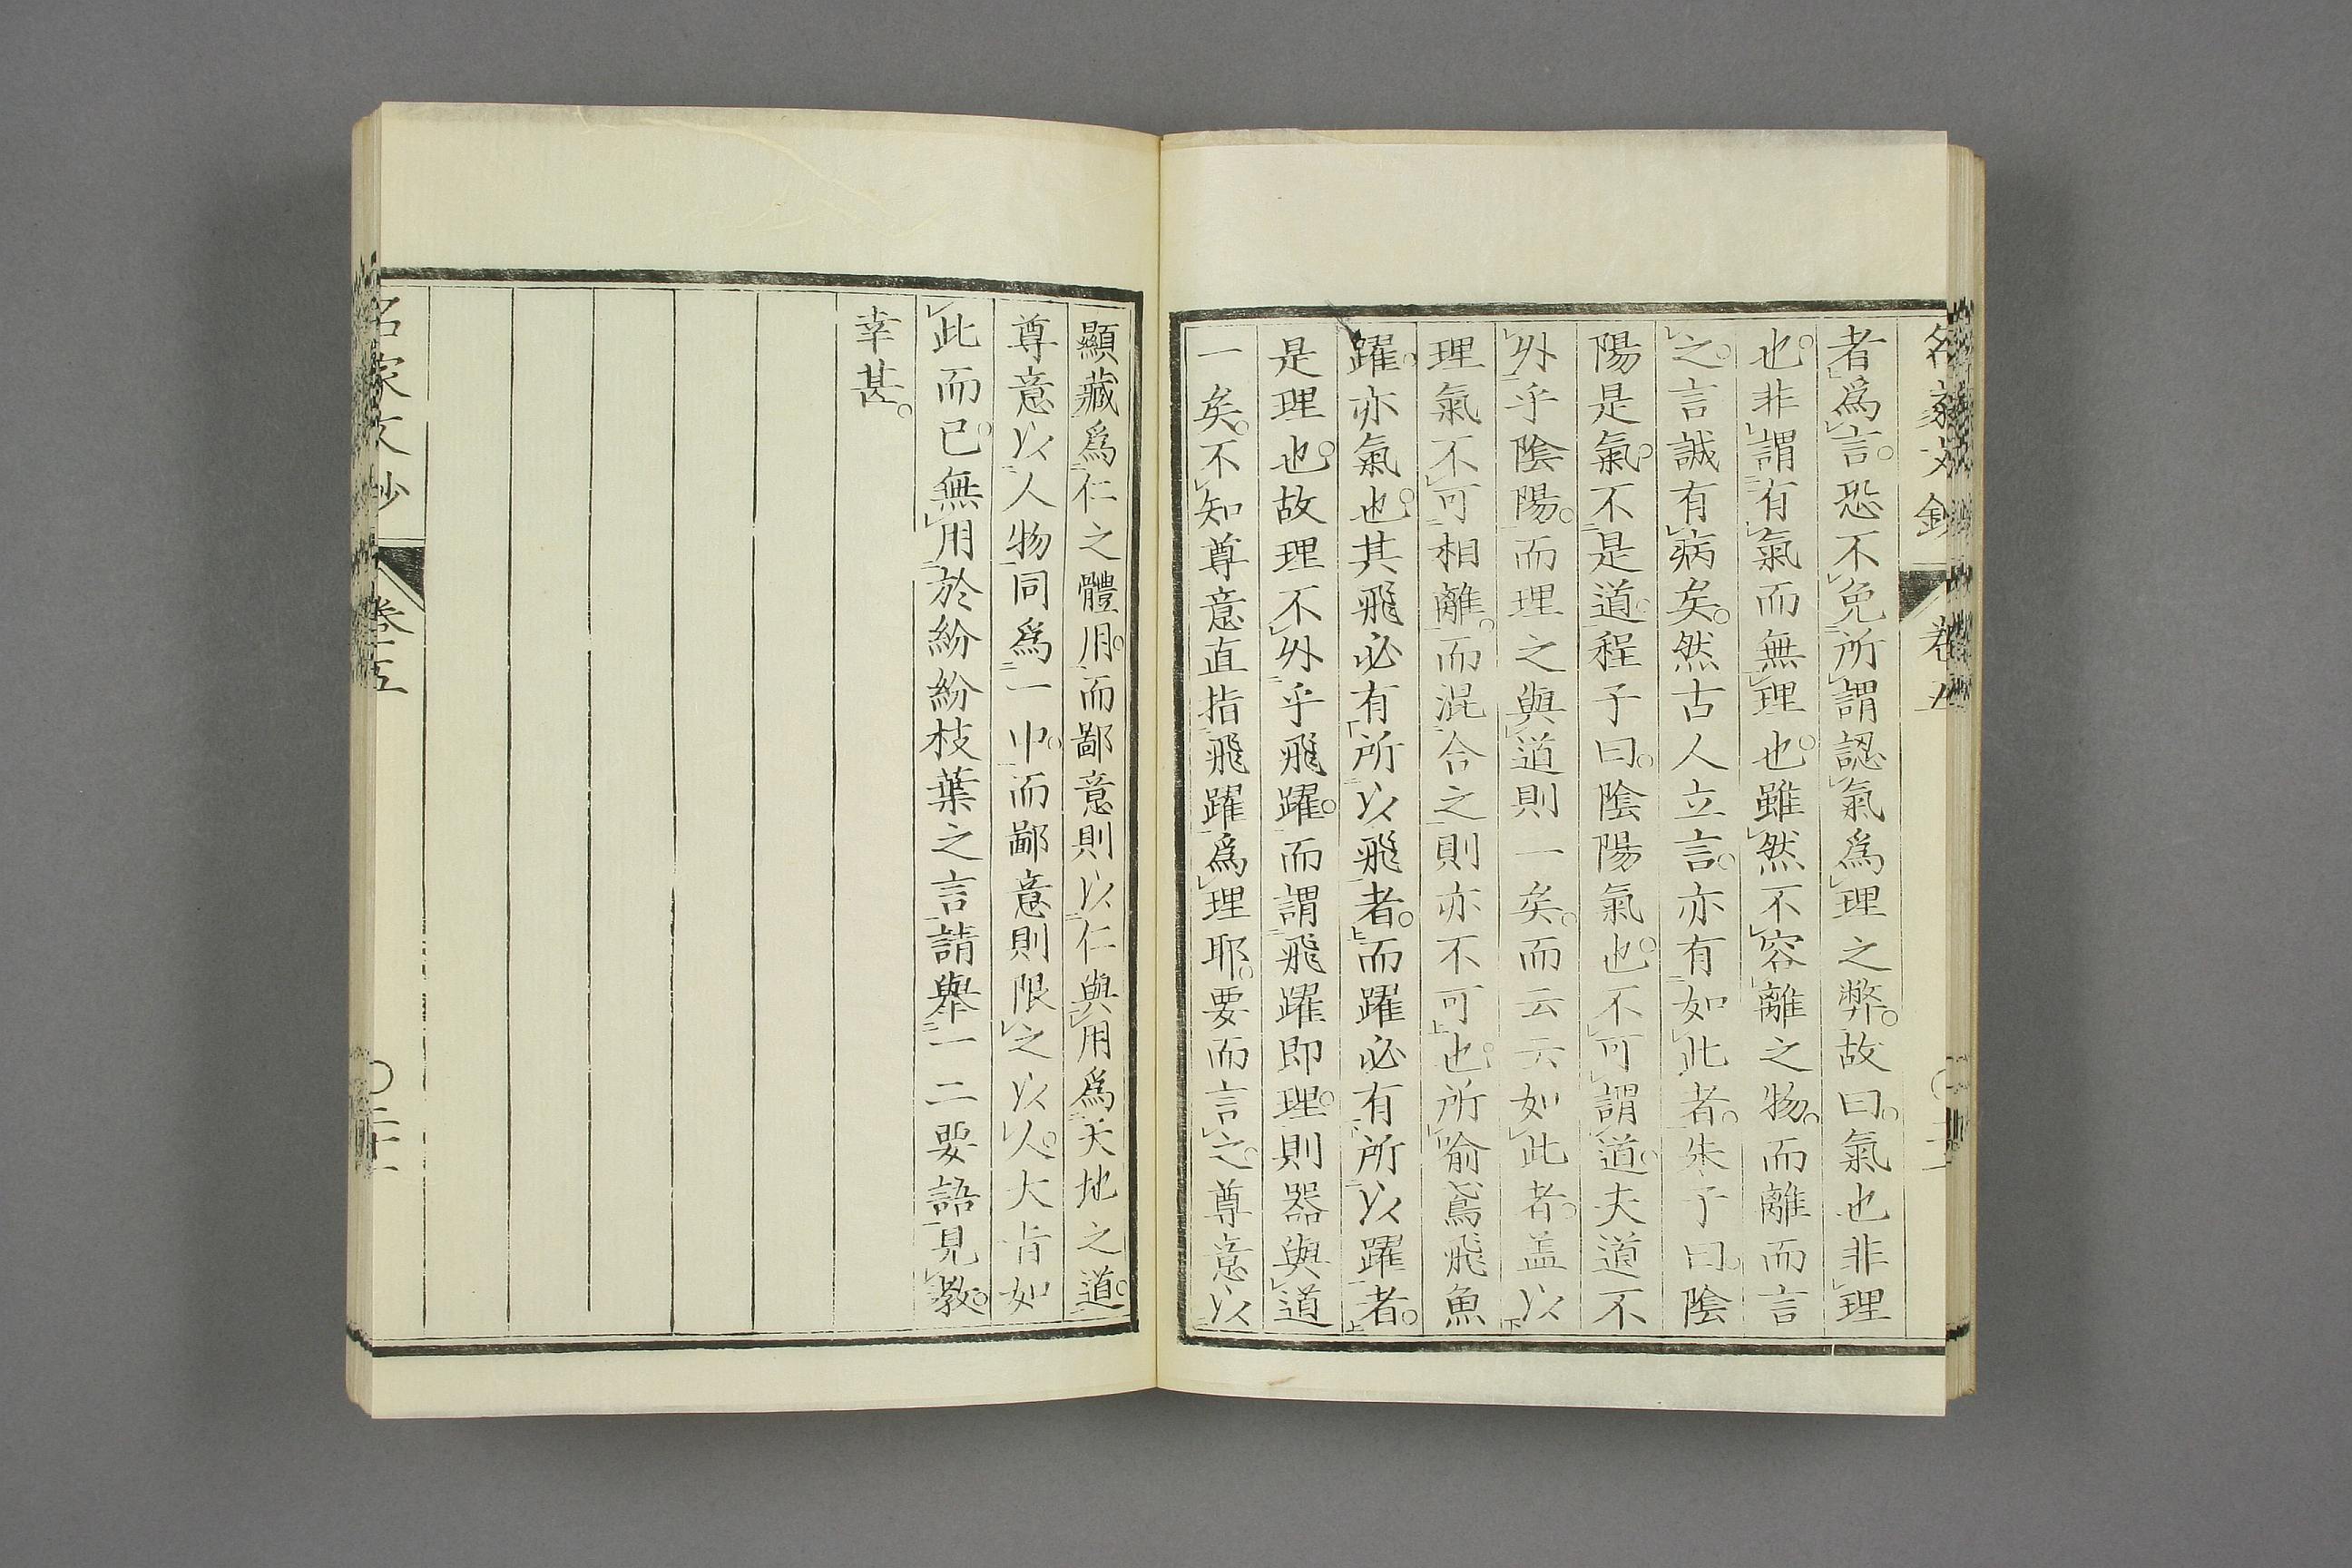 名家文鈔 卷五
者爲言。恐不免所謂認氣爲理之弊。故曰。氣也非理
也。非謂有氣而無理也。雖然不容離之物。而離而言
之。言誠有病矣。然古人立言。亦有如此者。朱子曰。陰
陽是氣。不是道。程子曰。陰陽氣也。不可謂道。夫道不
外乎陰陽。而理之與道則一矣。而云云如此者。盖以
理氣不可相離。而混合之則亦不可也。所喻鳶飛魚
躍。亦氣也。其飛必有所以飛者。而躍必有所以躍者。
是理也。故理不外乎飛躍。而謂飛躍即理。則器與道
一矣。不知尊意直指飛躍爲理耶。要而言之。尊意以
顯藏爲仁之體用。而鄙意則以仁與用爲天地之道。
尊意以人物同爲一中。而鄙意則限之以人。大旨如
此而已。無用於紛紛枝葉之言請舉一二要語見教。
幸甚。
名家文鈔 卷五